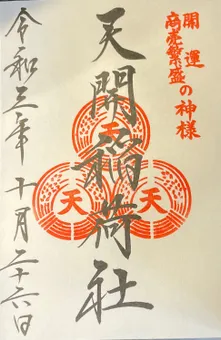 開運
商売繁盛の神様
天開稲荷社
天
天
天
令和三年十月二十六日